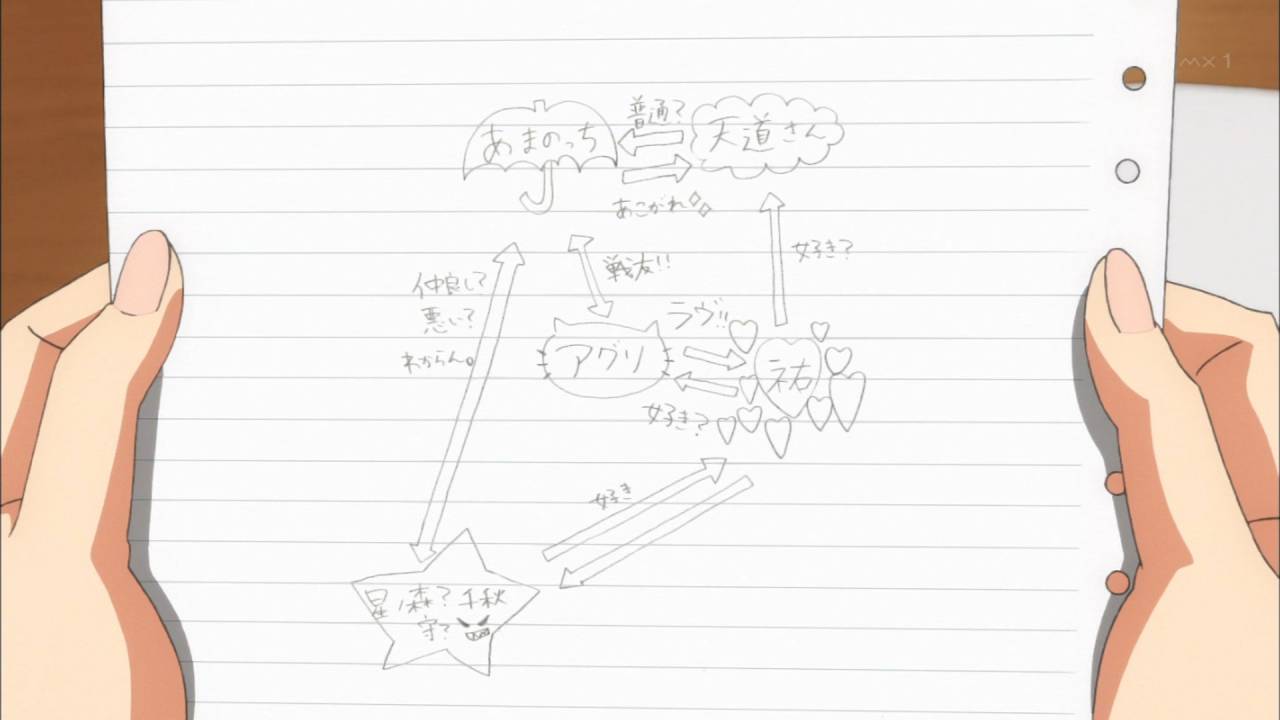 MX1
普通?
あまのっち
天道さん
あこがれ
好き?
戦友!!
仲良し?
悪い?
わからん。
ラヴ!!
アグリ
祐
好き?
好き
星ノ森?千秋
守?